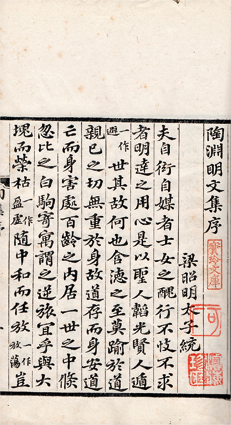 陶淵明文集序
寶玲文庫
梁昭明太子統
夫自衒自媒者士女之醜行不忮不求
者明達之用心是以聖人韜光賢人遁
一作避世其故何也含德之至莫踰於道
親已之切無重於身故道存而身安道
亡而身害處百齡之內居一世之中倐
忽比之白駒寄寓謂之逆旅宜乎與大
塊而榮枯作盈虛隨中和而任放作放蕩豈